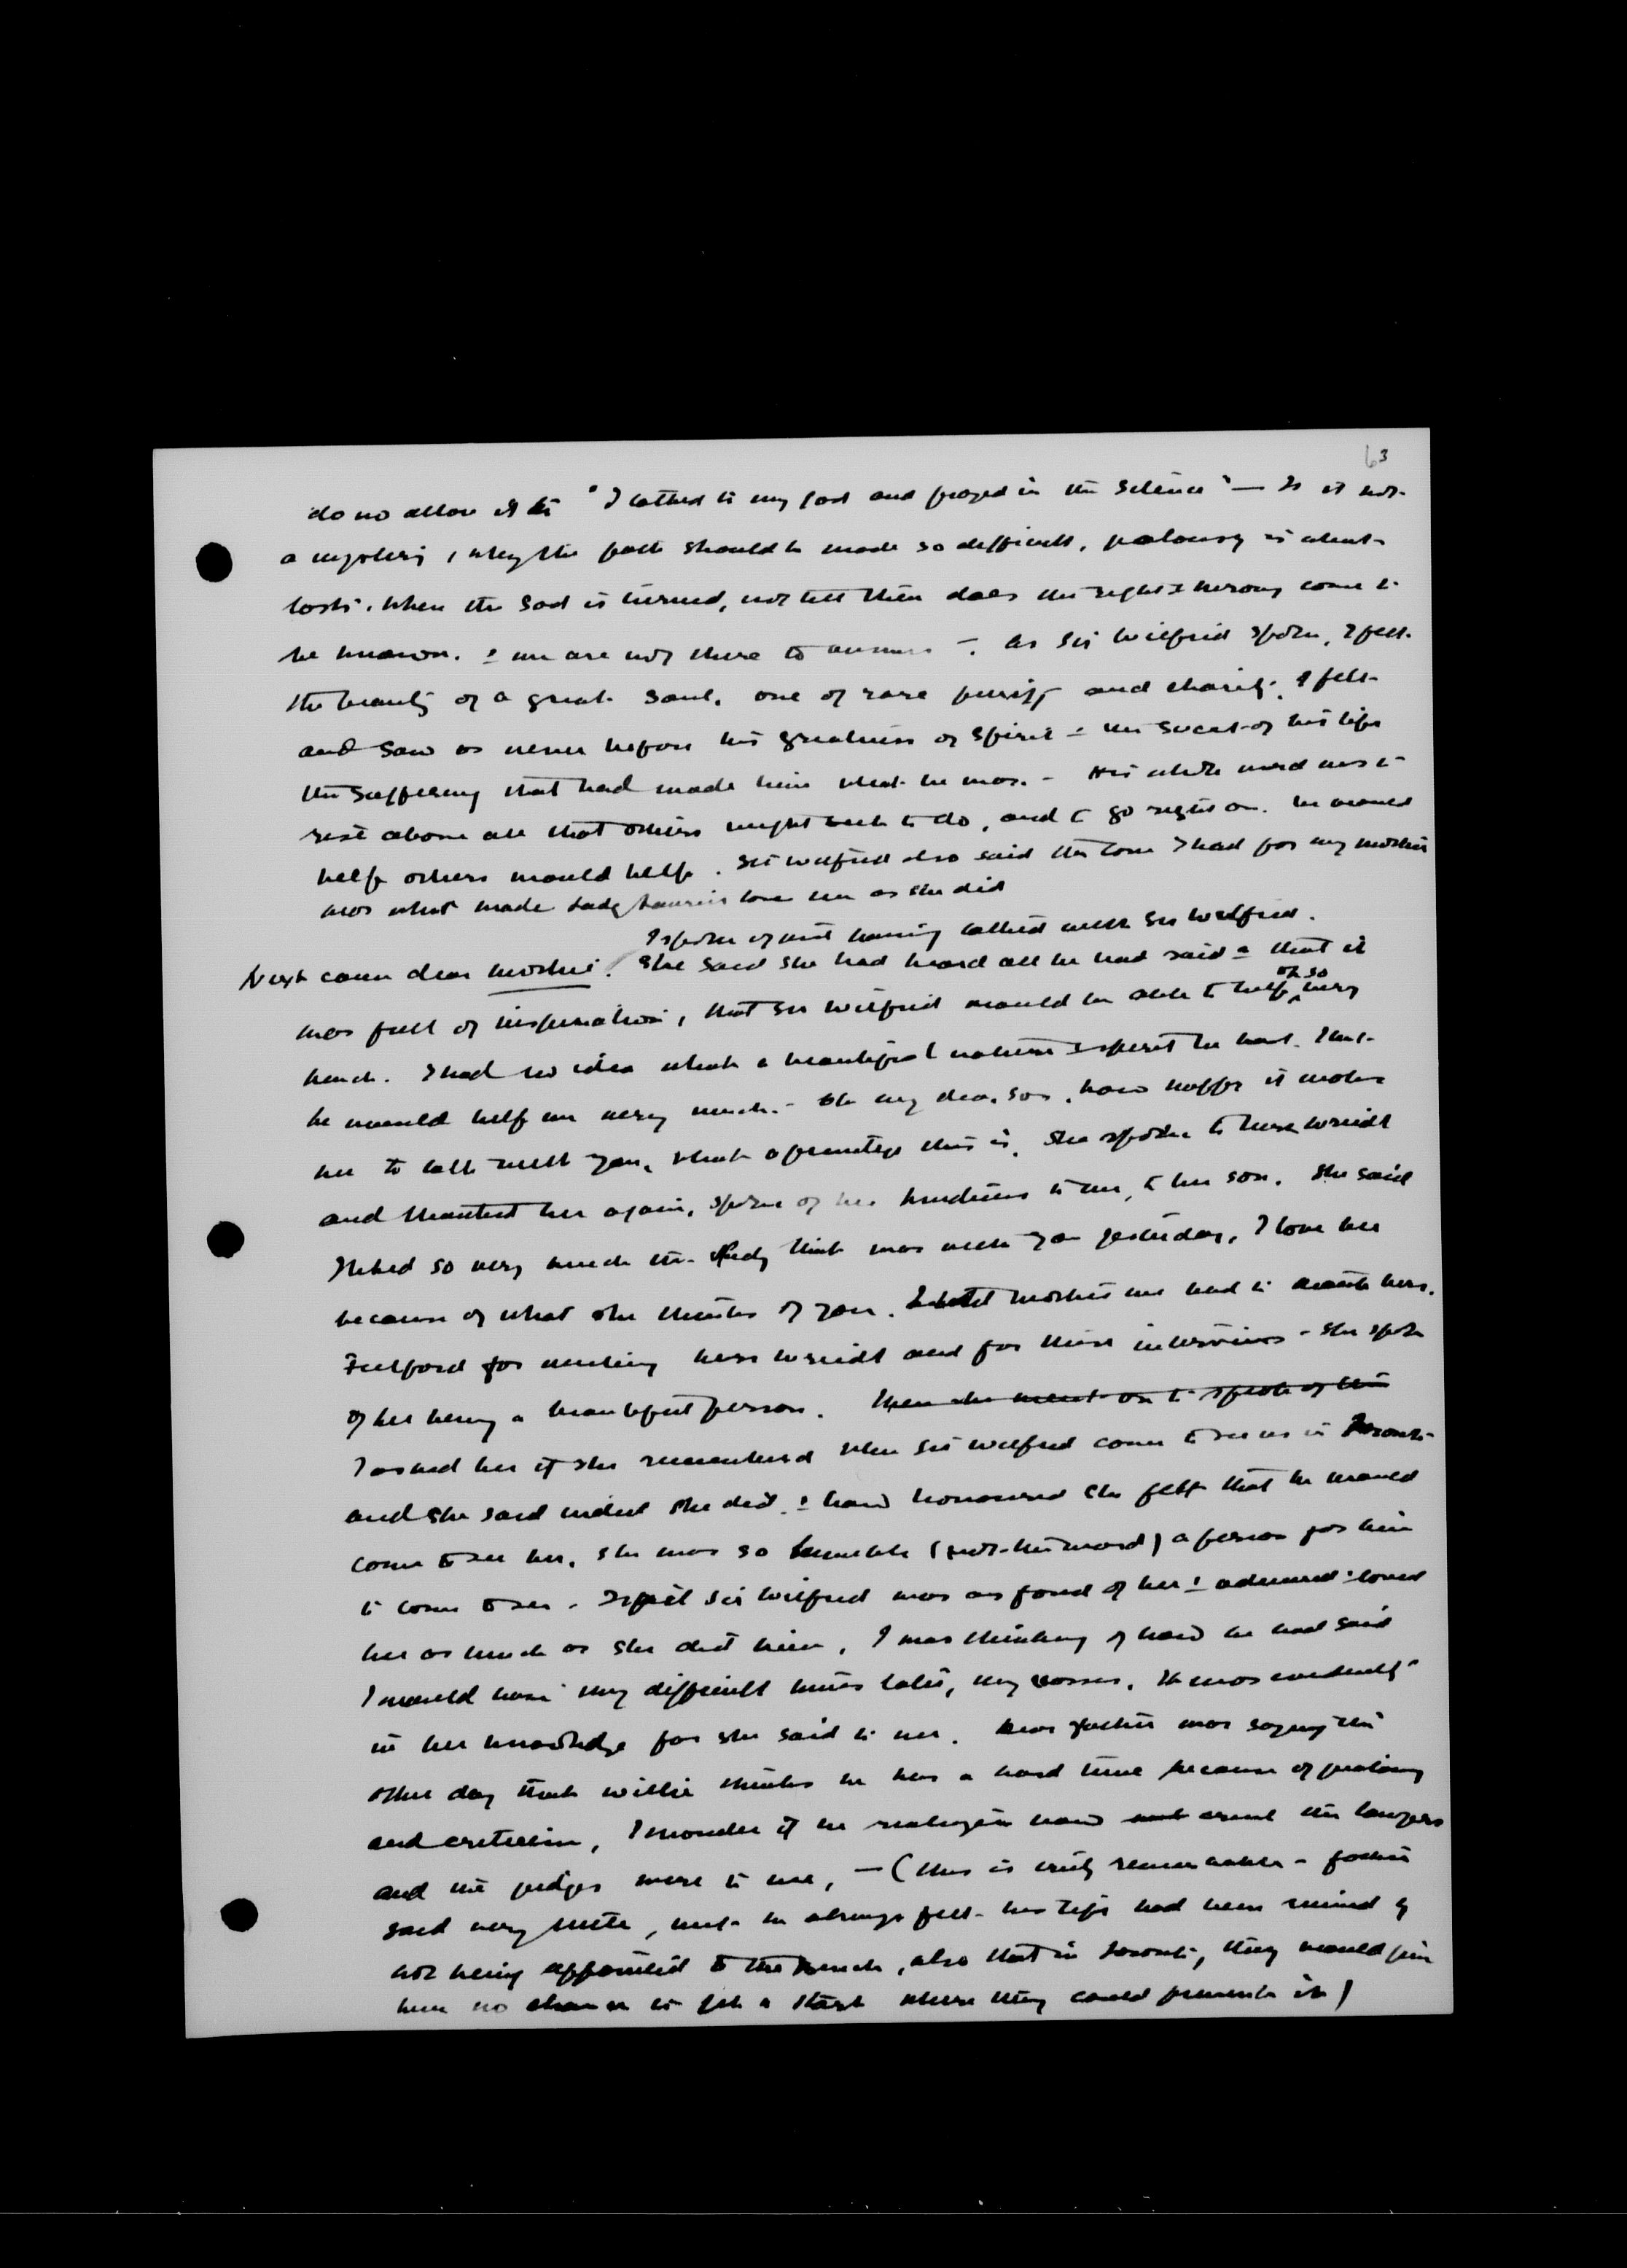 63
do no allow it to "I talked to my God and prayed in the silence" — Is it not
a mystery, why the path should be made so difficult, jealousy is what
lasts. When the sod is turned, not till then does the right & wrong come to
be known. & we are not there to answer —. As Sir Wilfrid spoke, I felt
the beauty of a great soul, one of rare purity and charity. I felt
and saw as never before his greatness of spirit & the secret of his life
the suffering that had made him what he was. — His whole word was to
rise above all that others might seek to do, and to go right on. He would
help others would help. Sir Wilfrid also said the love I had for my mother
was what made Lady Laurier love me as she did
I spoke of just having talked with Sir Wilfrid.
Next came dear mother. She said she had heard all he had said & that it
was full of inspiration, that Sir Wilfrid would be able to help oh so very
much. I had no idea what a beautiful nature & spirit he had. That
he would help me very much. – Oh my dear son, how happy it makes
me to talk with you, what a privilege this is. She spoke to Mrs. Wriedt
and thanked her again, spoke of her kindness to me, to her son. She said
I liked so very much the lady that was with you yesterday, I love her
because of what she thinks of you. I told mother we had to thank Mrs.
Fulford for meeting Mrs Wriedt and for these interviews – she spoke
of her being a beautiful person. Then she went on to speak of this
I asked her if she remembered when Sir Wilfrid came to see us in Toronto
and she said indeed she did. & how honoured she felt that he would
come to see her, she was so humble (not the word) a person for him
to come to see. I said Sir Wilfrid was as fond of her & admired & loved
her as much as she did him. I was thinking of how he had said
I would have my difficult times later, my crosses. It was evidently
in her knowledge for she said to me. Dear father was saying the
other day that Willie thinks he has a hard time because of jealousy
and criticism, I wonder if he realizes how cruel the lawyers
and the judges were to me, — (this is truly remarkable – father
said very little, but he always felt his life had been ruined by
not being appointed to the Bench, also that in Toronto, they would give
him no chance to get a start where they could prevent it)